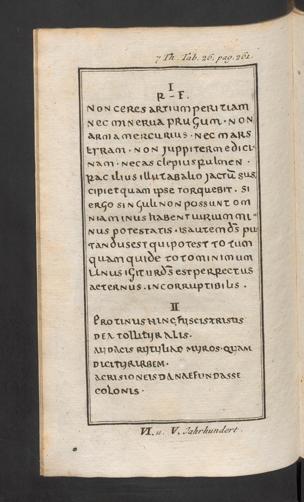 7 Th. Tab. 26. pag. 261.
I
R - F.
NON CERES ARTIUM PERITIAM
NEC MINERUA FRUGUM · NON
ARMA MERCURIUS · NEC MARS
LYRAM · NON IUPPITER MEDICI
NAM · NEC ASCLEPIUS FULMEN ·
FACILIUS ILLUT ABALIO JACTŪ SUS
CIPIET QUAM IPSE TORQUEBIT · SI
ERGO SINGULI NON POSSUNT OM
NIA MINUS HABENT UIRIUM MI-
NUS POTESTATIS · IS AUTEM DS PU
TANDUS EST QUI POTEST TOTUM
QUAM QUI DE TOTO MINIMUM
UNUS IGITUR DS EST PERFECTUS
AETERNUS · INCORRUPTIBILIS ·
II
PROTINUS HINC FUSCIS TRISTIS
DEA TOLLITUR ALIS ·
AUDACIS RUTULI AD MUROS · QUAM
DICITUR URBEM ·
ACRISIONEIS DANAE FUNDASSE
COLONIS ·
VI. u. V. Jahrhundert.